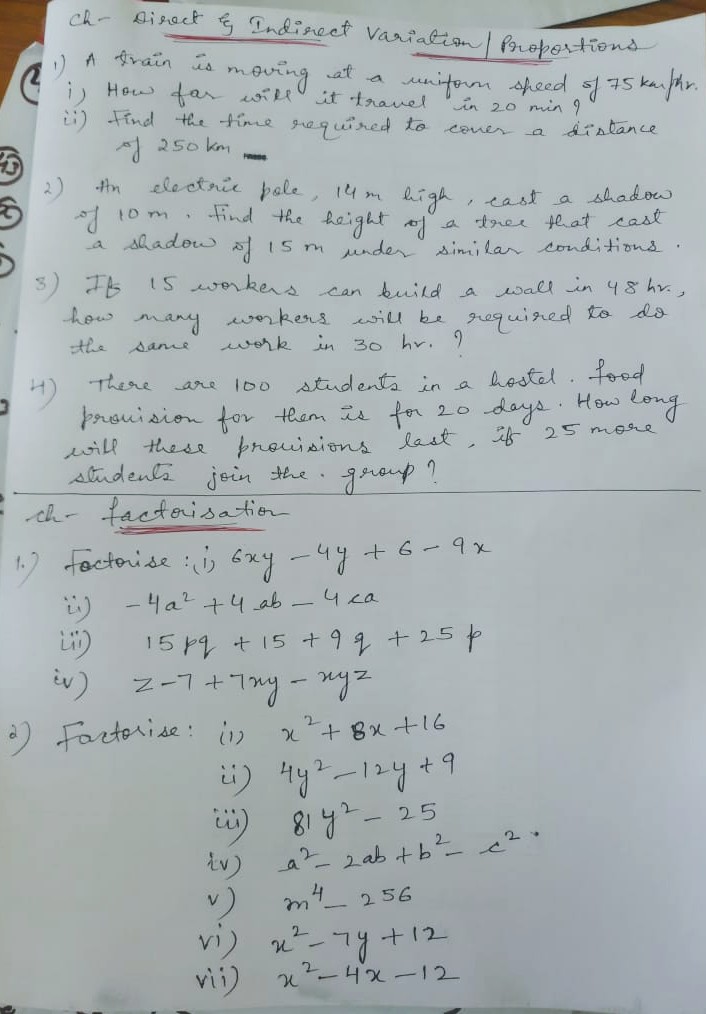 ch- Direct & Indirect Variation / Proportions
1) A train is moving at a uniform speed of 75 km/hr.
i) How far will it travel in 20 min?
ii) Find the time required to cover a distance
of 250 km
2) An electric pole, 14 m high, cast a shadow
of 10 m. Find the height of a tree that cast
a shadow of 15 m under similar conditions.
3) If 15 workers can build a wall in 48 hr.,
how many workers will be required to do
the same work in 30 hr.?
4) There are 100 students in a hostel. food
provision for them is for 20 days. How long
will these provisions last, if 25 more
students join the. group?
ch- factorisation
1.) Factorise: i) 6xy - 4y + 6 - 9x
ii) -4a² + 4ab - 4ca
iii) 15pq + 15 + 9q + 25p
iv) z - 7 + 7xy - xyz
2) Factorise: i) x² + 8x + 16
ii) 4y² - 12y + 9
iii) 81y² - 25
iv) a² - 2ab + b² - c².
v) m⁴ - 256
vi) x² - 7y + 12
vii) x² - 4x - 12